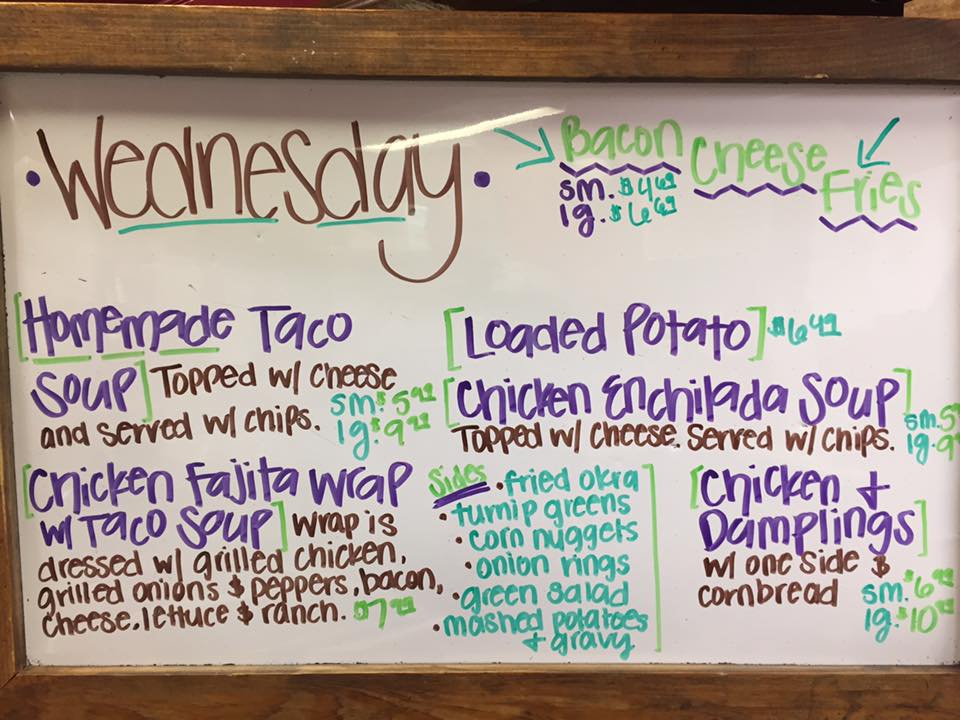 • Wednesday •
Bacon Cheese Fries
sm. $4.69
lg. $6.69
[Homemade Taco
Soup] Topped w/ cheese
and served w/ chips.
sm. $5
lg. $9
[Loaded Potato] $6.49
[Chicken Enchilada Soup]
Topped w/ cheese. Served w/ chips.
sm. 5
lg. 9
[Chicken Fajita Wrap
w/ Taco Soup] Wrap is
dressed w/ grilled chicken,
grilled onions & peppers, bacon,
cheese, lettuce & ranch. $7
Sides
• fried okra
• turnip greens
• corn nuggets
• onion rings
• green salad
• mashed potatoes
+ gravy
[Chicken +
Damplings]
w/ one side &
cornbread
sm. $6
lg. $10